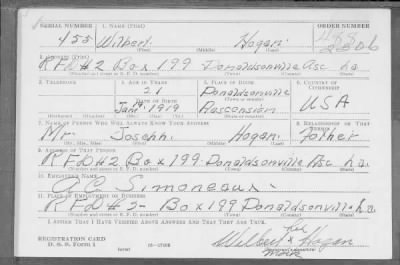 SERIAL NUMBER 1. NAME (Print) ORDER NUMBER
455 Wilbert Hogan 2806
(First) (Middle) (Last)
2. ADDRESS (Print)
RFD #2 Box 199 Donaldsonville Asc La
3. TELEPHONE 4. AGE IN YEARS 5. PLACE OF BIRTH 6. COUNTRY OF CITIZENSHIP
21 Donaldsonville
DATE OF BIRTH (Town or county)
Jan 1 1919 Ascension USA
7. NAME OF PERSON WHO WILL ALWAYS KNOW YOUR ADDRESS 8. RELATIONSHIP OF THAT PERSON
Mr. Joseph Hogan Father
(Mr., Mrs., Miss) (First) (Middle) (Last)
9. ADDRESS OF THAT PERSON
RFD #2 Box 199 Donaldsonville Asc La
10. EMPLOYER'S NAME
A C Simoneaux
11. PLACE OF EMPLOYMENT OR BUSINESS
RFD #2- Box 199 Donaldsonville La
I AFFIRM THAT I HAVE VERIFIED ABOVE ANSWERS AND THAT THEY ARE TRUE.
REGISTRATION CARD his
D. S. S. FORM 1 Wilbert x Hogan
mark